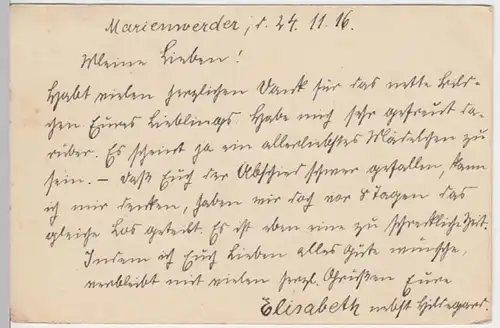 Marienwerder, d. 24. 11. 16.
Meine Lieben!
Habt vielen herzlichen Dank für das nette Bild-
chen Eures Lieblings. Habe mich sehr gefreut da-
rüber. Es scheint ja ein allerliebstes Mädelchen zu
sein. – Daß Euch der Abschied schwer gefallen, kann
ich mir denken, haben wir doch vor 8 Tagen das
gleiche Los geteilt. Es ist eben eine zu schreckliche Zeit.
Indem ich Euch Lieben alles Gute wünsche,
verbleibt mit vielen herzl. Grüßen Eure
Elisabeth nebst Hildegard.